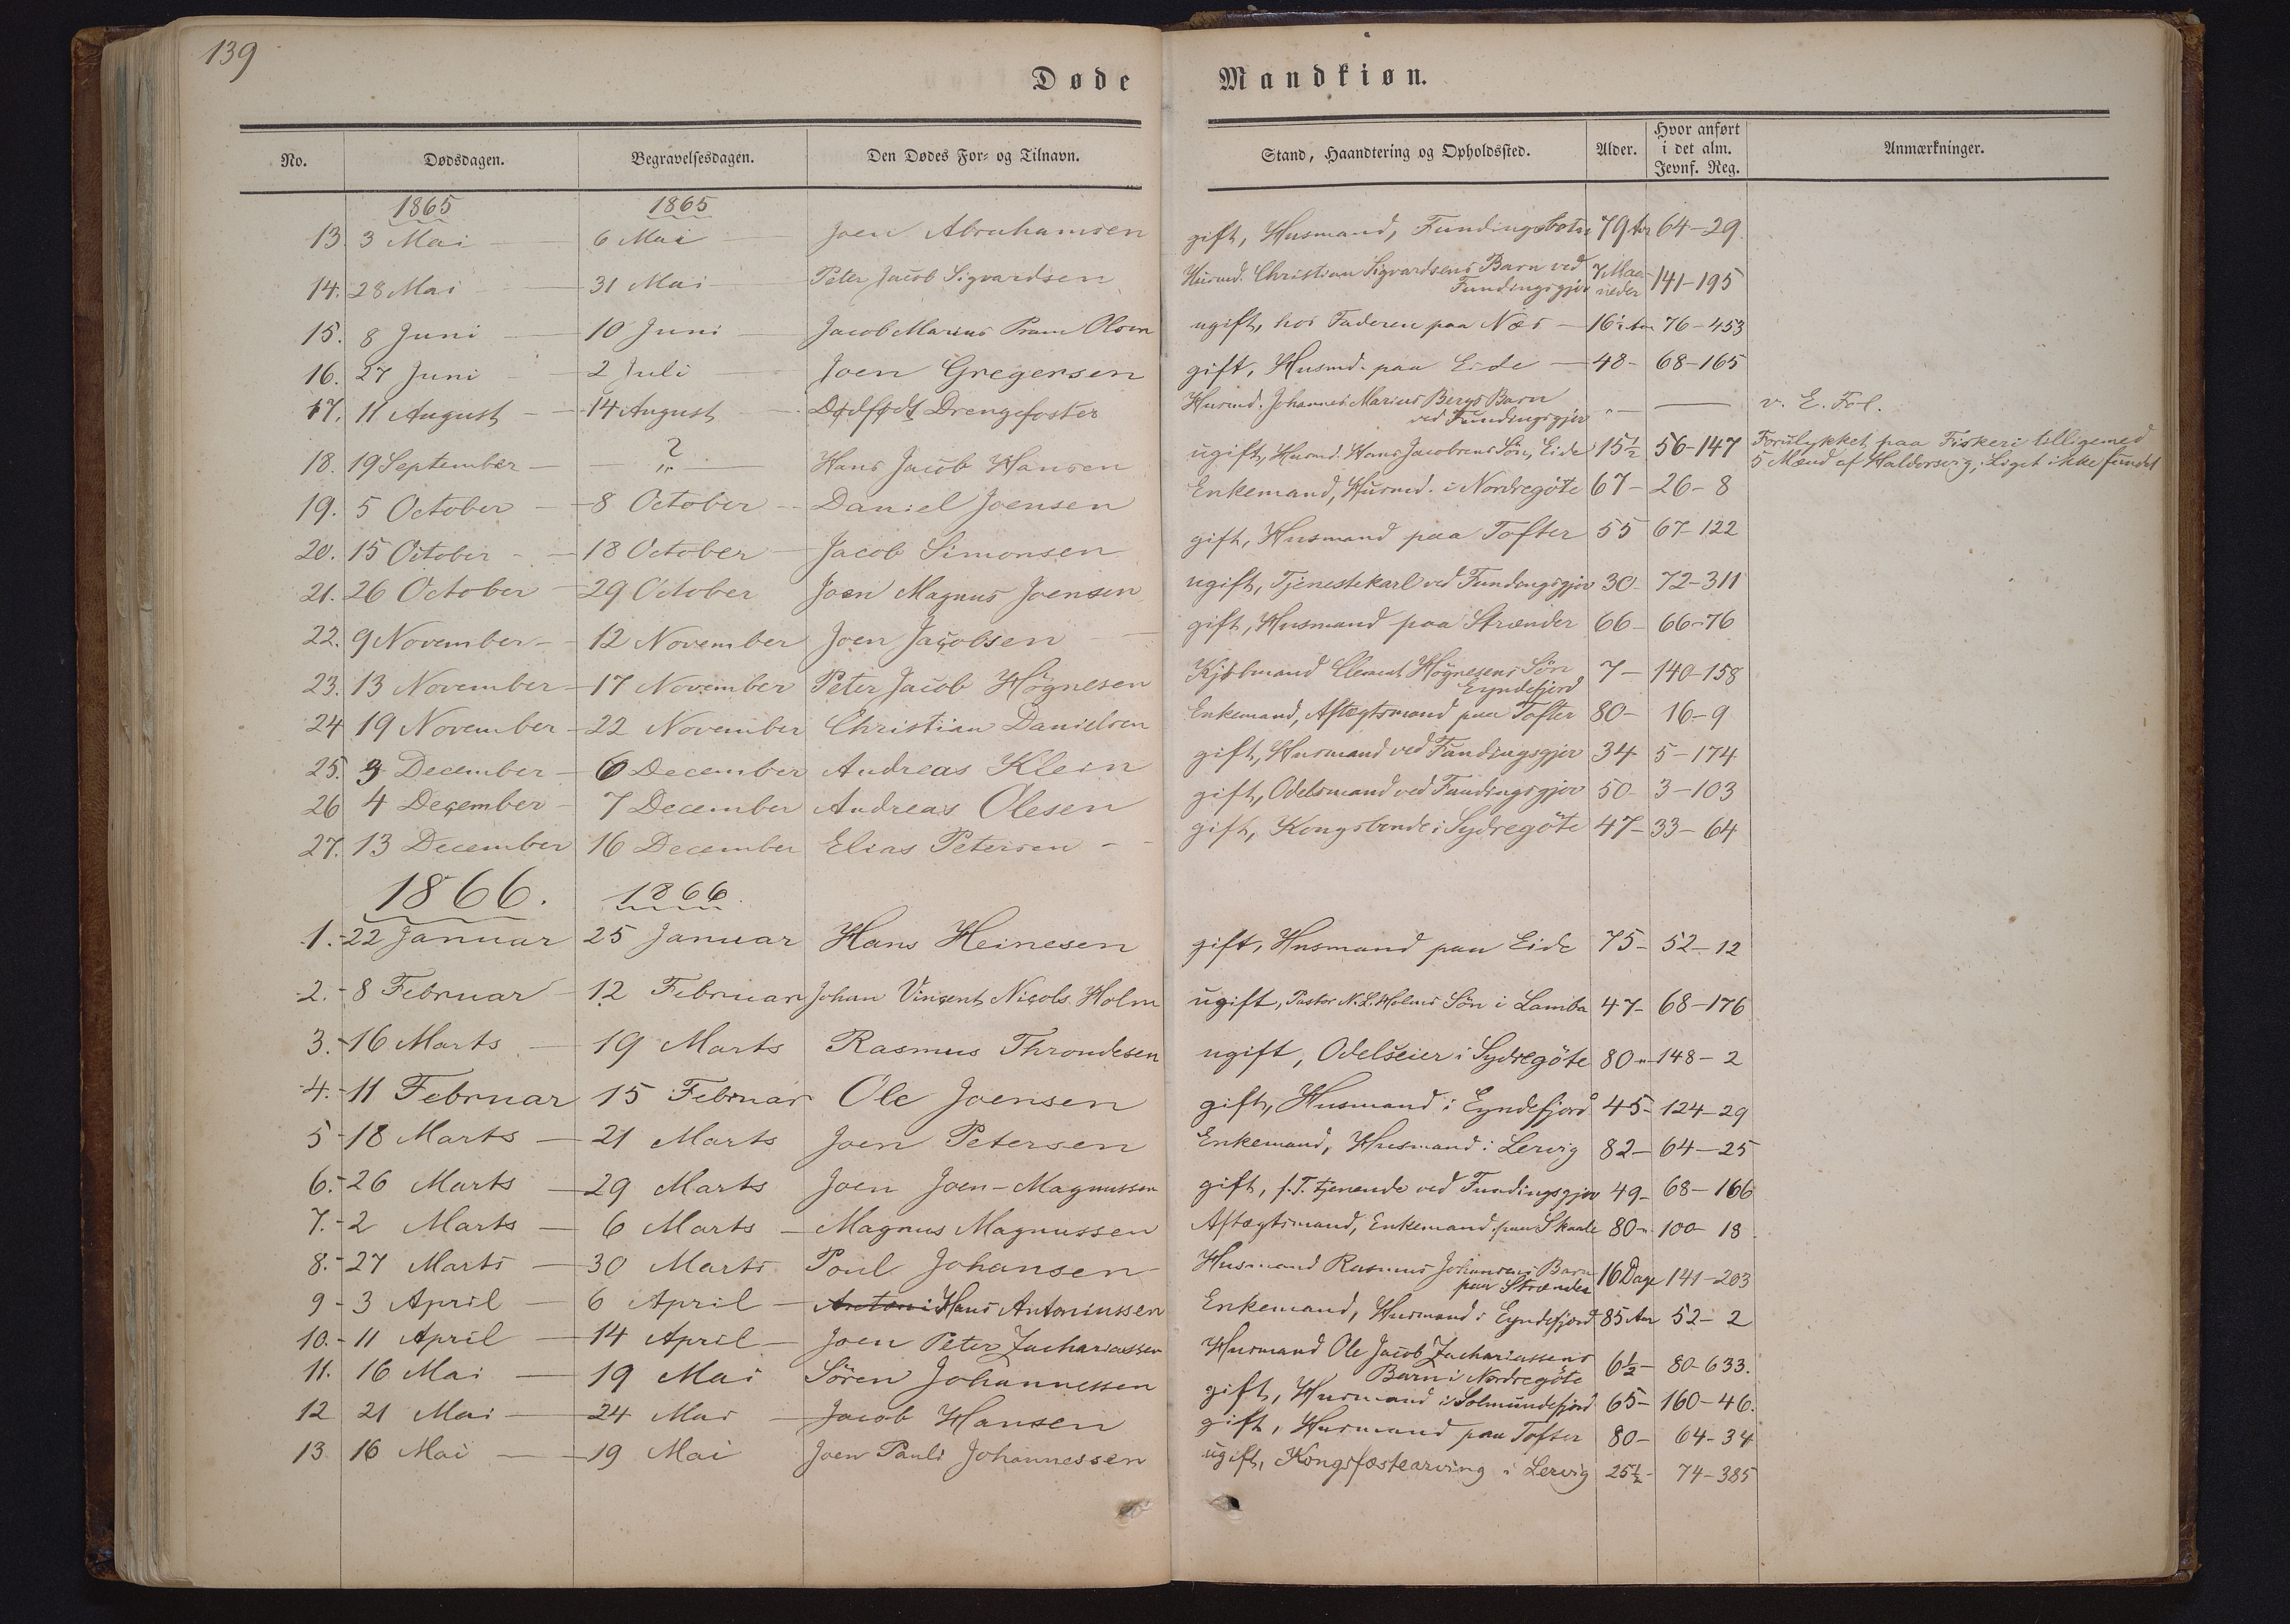 139
Døde Mandkiøn.
No. Dødsdagen. Begravelsesdagen. Den Dødes For- og Tilnavn. Stand, Haandtering og Opholdssted. Alder. Hvor anført i det alm. Jevnf. Reg. Anmærkninger.
1865 1865
13. 3 Mai 6 Mai Joen Abrahamsen gift, Husmand, Fundingsbotn 79 Aar 64-29.
14. 28 Mai 31 Mai Peter Jacob Sigvardsen Husmd. Christian Sigvardsens Barn ved Fundingsgjov 7 Maaneder 141-195
15. 8 Juni 10 Juni Jacob Marius Pram Olsen ugift, hos Faderen paa Næs 16 76-453
16. 27 Juni 2 Juli Joen Gregersen gift, Husmd. paa Eide 48- 68-165
17. 11 August 14 August Dødfødt Drengefoster Husmd. Johannes Marius Bergs Barn ved Fundingsgjov " v. E. Fol.
18. 19 September ? " Hans Jacob Hansen ugift, Husmd. Hans Jacobsens Søn, Eide 15½ 56-147 Forulykket paa Fiskeri tilligemed
5 Mænd af Haldorsvig; Liget ikke fundet
19. 5 October 8 October Daniel Joensen Enkemand, Husmd. i Nordregöte 67- 26-8
20. 15 October 18 October Jacob Simonsen gift, Husmand paa Tofter 55 67-122
21. 26 October 29 October Joen Magnus Joensen ugift, Tjenestekarl ved Fundingsgjov 30- 72-311
22. 9 November 12 November Joen Jacobsen gift, Husmand paa Strænder 66- 66-76
23. 13 November 17 November Peter Jacob Högnesen Clement Högnesens Søn Eyndefjord 7- 140-158
24 19 November 22 November Christian Danielsen Enkemand, Aftægtsmand paa Tofter 80- 16-9
25. 3 December 6 December Andreas Klein gift, Husmand ved Fundingsgjov 34 5-174
26 4 December 7 December Andreas Olesen gift, Odelsmand ved Fundingsgjov 50- 3-103
27. 13 December 16 December Elias Petersen gift, Kongsbonde i Sydregöte 47- 33-64
1866. 1866.
1. 22 Januar 25 Januar Hans Heinesen gift, Husmand paa Eide 75- 52-12
2. 8 Februar 12 Februar Johan Vincent Nicols. Holm ugift, Pastor N. L. Holms Sön i Lamba 47- 68-176
3. 16 Marts 19 Marts Rasmus Throndesen ugift, Odelseier i Sydregöte 80 148-2
4. 11 Februar 15 Februar Ole Joensen gift, Husmand i Eyndefjord 45- 124-29
5 18 Marts 21 Marts Joen Petersen Enkemand, Husmand i Lervig 82- 64-25
6. 26 Marts 29 Marts Joen Joen-Magnussen gift, f. T. tjenende ved Fundingsgjov 49- 68-166
7. 2 Marts 6 Marts Magnus Magnussen Aftægtsmand, Enkemand paa Skaale 80 100-18
8. 27 Marts 30 Marts Poul Johansen Husmand Rasmus Johansens Barn paa Strænder 16 Dage 141-203
9 3 April 6 April Antoni Hans Antoniussen Enkemand, Husmand i Eyndefjord 85 Aar 52-2
10. 11 April 14 April Joen Peter Zachariassen Husmand Ole Jacob Zachariassens Barn i Nordregöte 6½- 80-633.
11. 16 Mai 19 Mai Sören Johannessen gift, Husmand i Solmundefjord 65- 160-46.
12 21 Mai 24 Mai Jacob Hansen gift, Husmand paa Tofter 80- 64-34
13 16 Mai 19 Mai Joen Pauli Johannessen ugift, Kongsfæstearving i Lervig 25½- 74-385